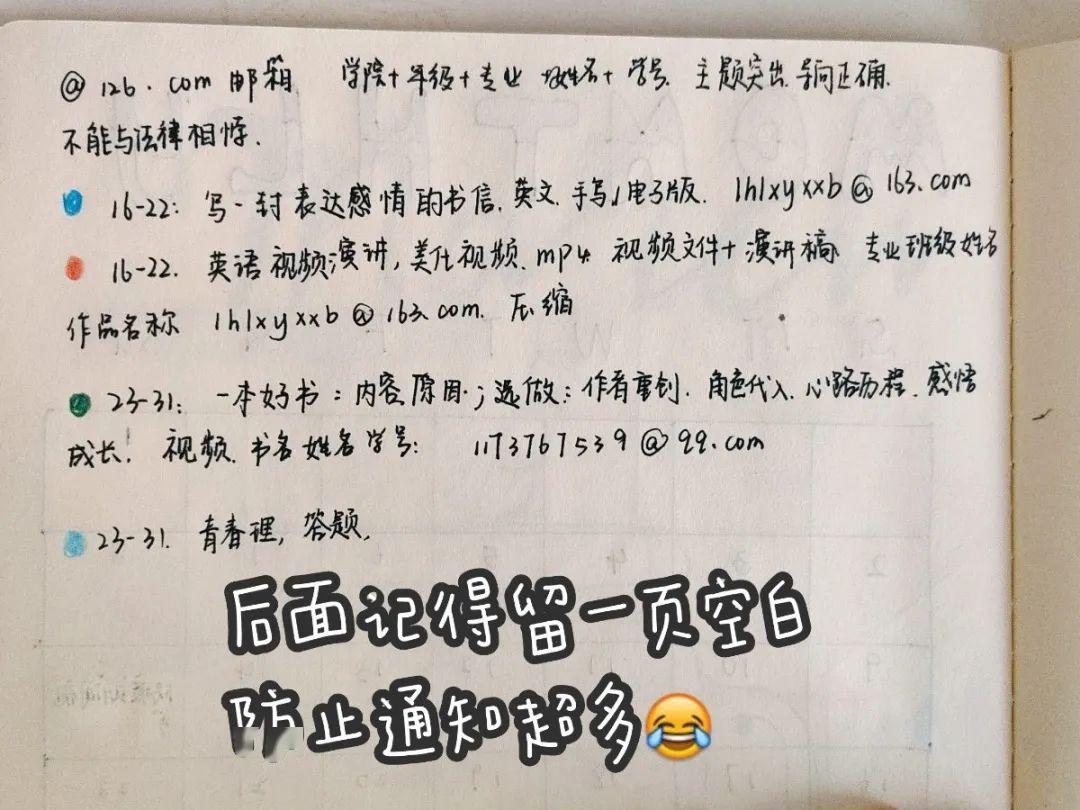 @ 126. com 邮箱 学院+年级+专业+姓名+学号. 主题突出.导向正确.
不能与法律相悖.
16-22: 写一封表达感情的书信.英文.手写/电子版. lhlxyxxb@163.com
16-22. 英语视频演讲,美化视频.mp4 视频文件+演讲稿 专业班级姓名
作品名称 lhlxyxxb@163.com. 压缩
23-31: 一本好书:内容原因;选做:作者重创.角色代入.心路历程.感悟
成长! 视频.书名姓名学号: 1173767539@qq.com
23-31. 青春理,答题,
后面记得留一页空白
防止通知超多😂